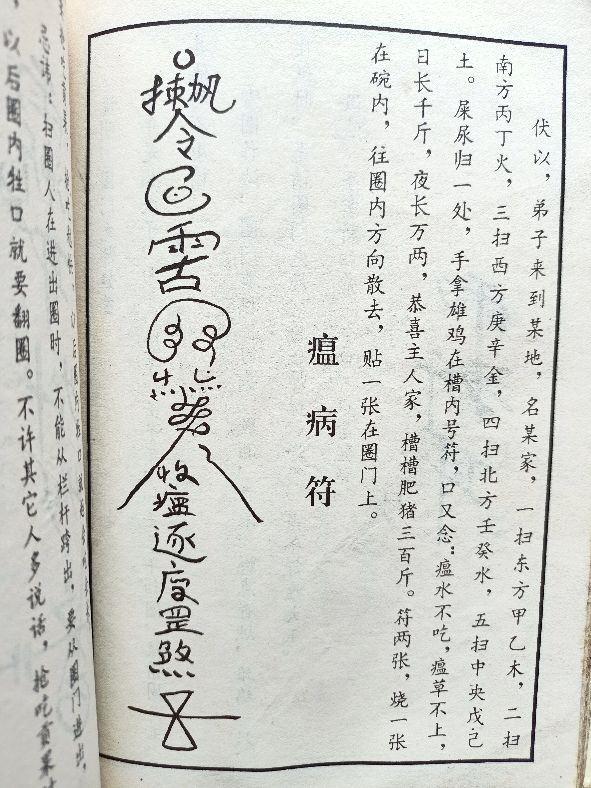 伏以，弟子来到某地，名某家，一扫东方甲乙木，二扫
南方丙丁火，三扫西方庚辛金，四扫北方壬癸水，五扫中央戊己
土。屎尿归一处，手拿雄鸡在槽内号符，口又念：瘟水不吃，瘟草不上，
日长千斤，夜长万两，恭喜主人家，槽槽肥猪三百斤。符两张，烧一张
在碗内，往圈内方向散去，贴一张在圈门上。
瘟病符
令
收瘟逐疫罡煞
忌讳：扫圈人在进出圈时，不能从栏杆跨出，要从圈门进出，
，以后圈内牲口就要翻圈。不许其它人多说话，抢吃贡果